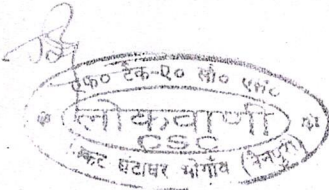 एफ० टेक-ए० सी० एस०
लोकवाणी
CSC
निकट घंटाघर भोगांव (मैनपुरी)